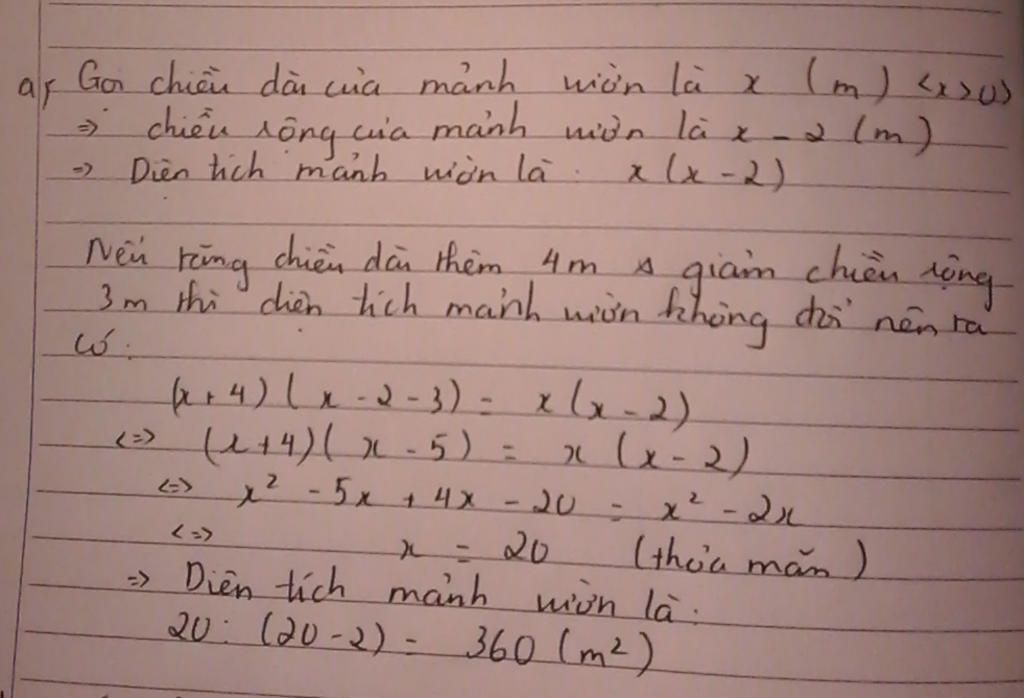 a, Gọi chiều dài của mảnh vườn là x (m) <x>0>
=> chiều rộng của mảnh vườn là x - 2 (m)
=> Diện tích mảnh vườn là: x(x - 2)
Nếu tăng chiều dài thêm 4m & giảm chiều rộng
3m thì diện tích mảnh vườn không đổi nên ta
có:
(x + 4) (x - 2 - 3) = x(x - 2)
<=> (x + 4)(x - 5) = x (x - 2)
<=> x² - 5x + 4x - 20 = x² - 2x
<=> x = 20 (thỏa mãn)
=> Diện tích mảnh vườn là:
20: (20 - 2) = 360 (m²)